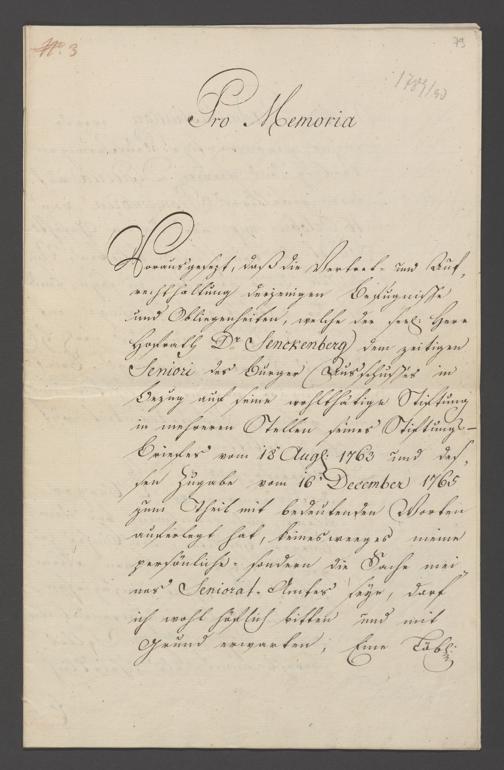 No. 3
79
1789/90
Pro Memoria
Vorausgesezt, daß die Vertret- und Auf,
rechthaltung derjenigen Befugnisse
und Obliegenheiten, welche der seel. Herr
Hofrath Dr. Senckenberg dem zeitigen
Seniori des Bürger Ausschusses in
Bezug auf seine wohlthätige Stiftung
in mehreren Stellen seines Stiftungs-
Briefes vom 18 Aug. 1763 und des,
sen Zugabe vom 16 December 1765
zum Theil mit bedeutenden Worten
auferlegt hat, keinesweeges meine
persönliche- sondern die Sache mei,
nes Seniorat-Amtes seye, darf
ich wohl höflich bitten und mit
Grund erwarten, Eine Löbl.